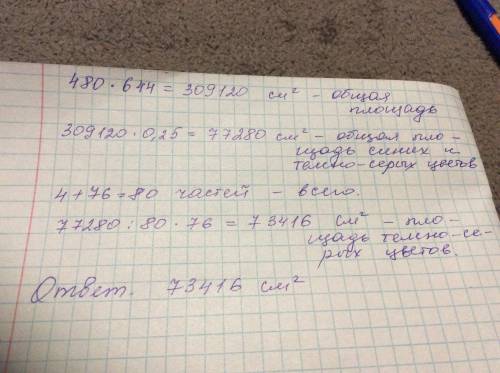 480 · 644 = 309120 см² - общая
площадь
309120 · 0,25 = 77280 см² - общая пло-
щадь синих и
темно-серых цветов
4 + 76 = 80 частей - всего.
77280 : 80 · 76 = 73416 см² - пло-
щадь темно-се-
рых цветов.
Ответ. 73416 см²